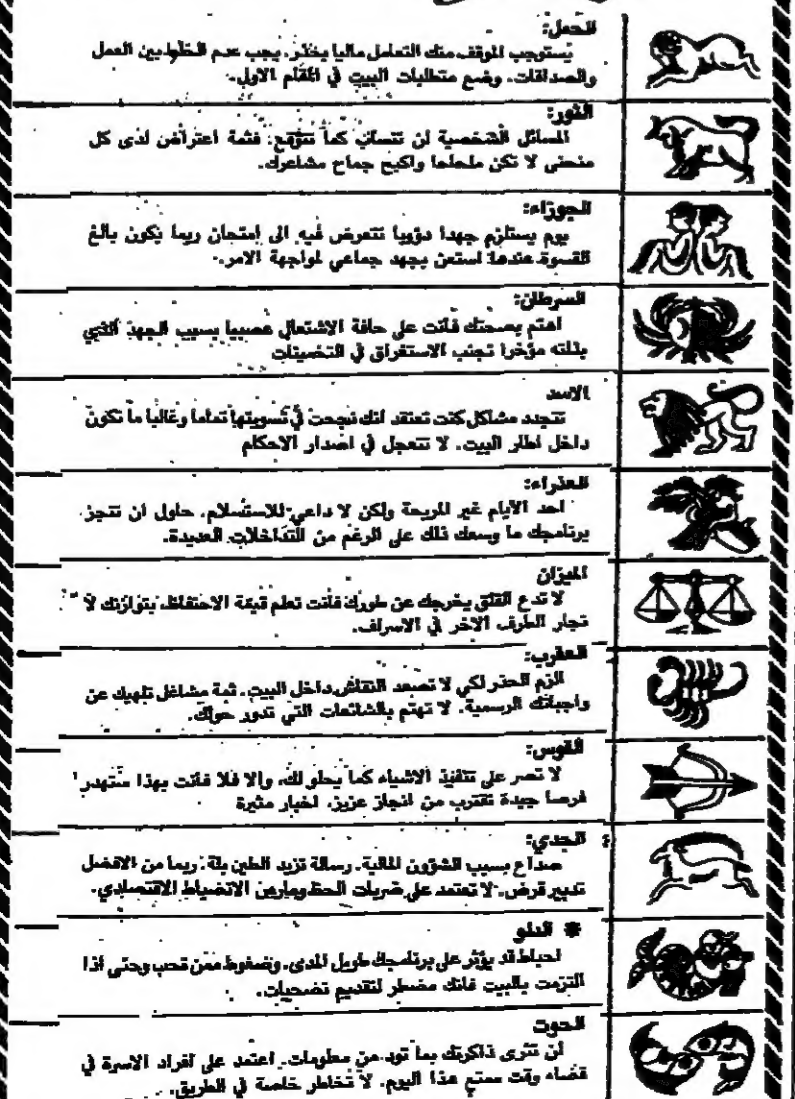 الحمل:
يستوجب الموقف منك التعامل ماليا بحذر. يجب عدم الخلط بين العمل
والصداقات. وضع متطلبات البيت في المقام الاول.
الثور:
المسائل الشخصية لن تنساب كما تتوقع. فثمة اعتراض لدى كل
منحنى لا تكن ملحاحا واكبح جماح مشاعرك.
الجوزاء:
يوم يستلزم جهدا دؤوبا تتعرض فيه الى إمتحان ربما يكون بالغ
القسوة عندها استعن بجهد جماعي لمواجهة الامر.
السرطان:
اهتم بصحتك فانت على حافة الاشتعال عصبيا بسبب الجهد الذي
بذلته مؤخرا تجنب الاستغراق في التخمينات
الاسد
تتجدد مشاكل كنت تعتقد انك نجحت في تسويتها تماما وغالبا ما تكون
داخل اطار البيت. لا تتعجل في اصدار الاحكام
العذراء:
احد الأيام غير المريحة ولكن لا داعي للاستسلام. حاول ان تنجز
برنامجك ما وسعك ذلك على الرغم من التداخلات العديدة.
الميزان
لا تدع القلق يخرجك عن طورك فانت تعلم قيمة الاحتفاظ بتوازنك لا
تجار الطرف الاخر في الاسراف.
العقرب:
الزم الحذر لكي لا تصعد النقاش داخل البيت. ثمة مشاغل تلهيك عن
واجباتك الرسمية. لا تهتم بالشائعات التي تدور حولك.
القوس:
لا تصر على تنفيذ الاشياء كما يحلو لك، والا فلا فانت بهذا ستهدر
فرصا جيدة تقترب من انجاز عزيز. اخبار مثيرة
الجدي:
صداع بسبب الشؤون المالية. رسالة تزيد الطين بلة. ربما من الافضل
تدبير قرض. لا تعتمد على ضربات الحظ ومارس الانضباط الاقتصادي.
* الدلو
احباط قد يؤثر على برنامجك طويل المدى. وضغوط ممن تحب وحتى اذا
التزمت بالبيت فانك مضطر لتقديم تضحيات.
الحوت
لن تثرى ذاكرتك بما تود من معلومات. اعتمد على افراد الاسرة في
قضاء وقت ممتع هذا اليوم. لا تخاطر خاصة في الطريق.